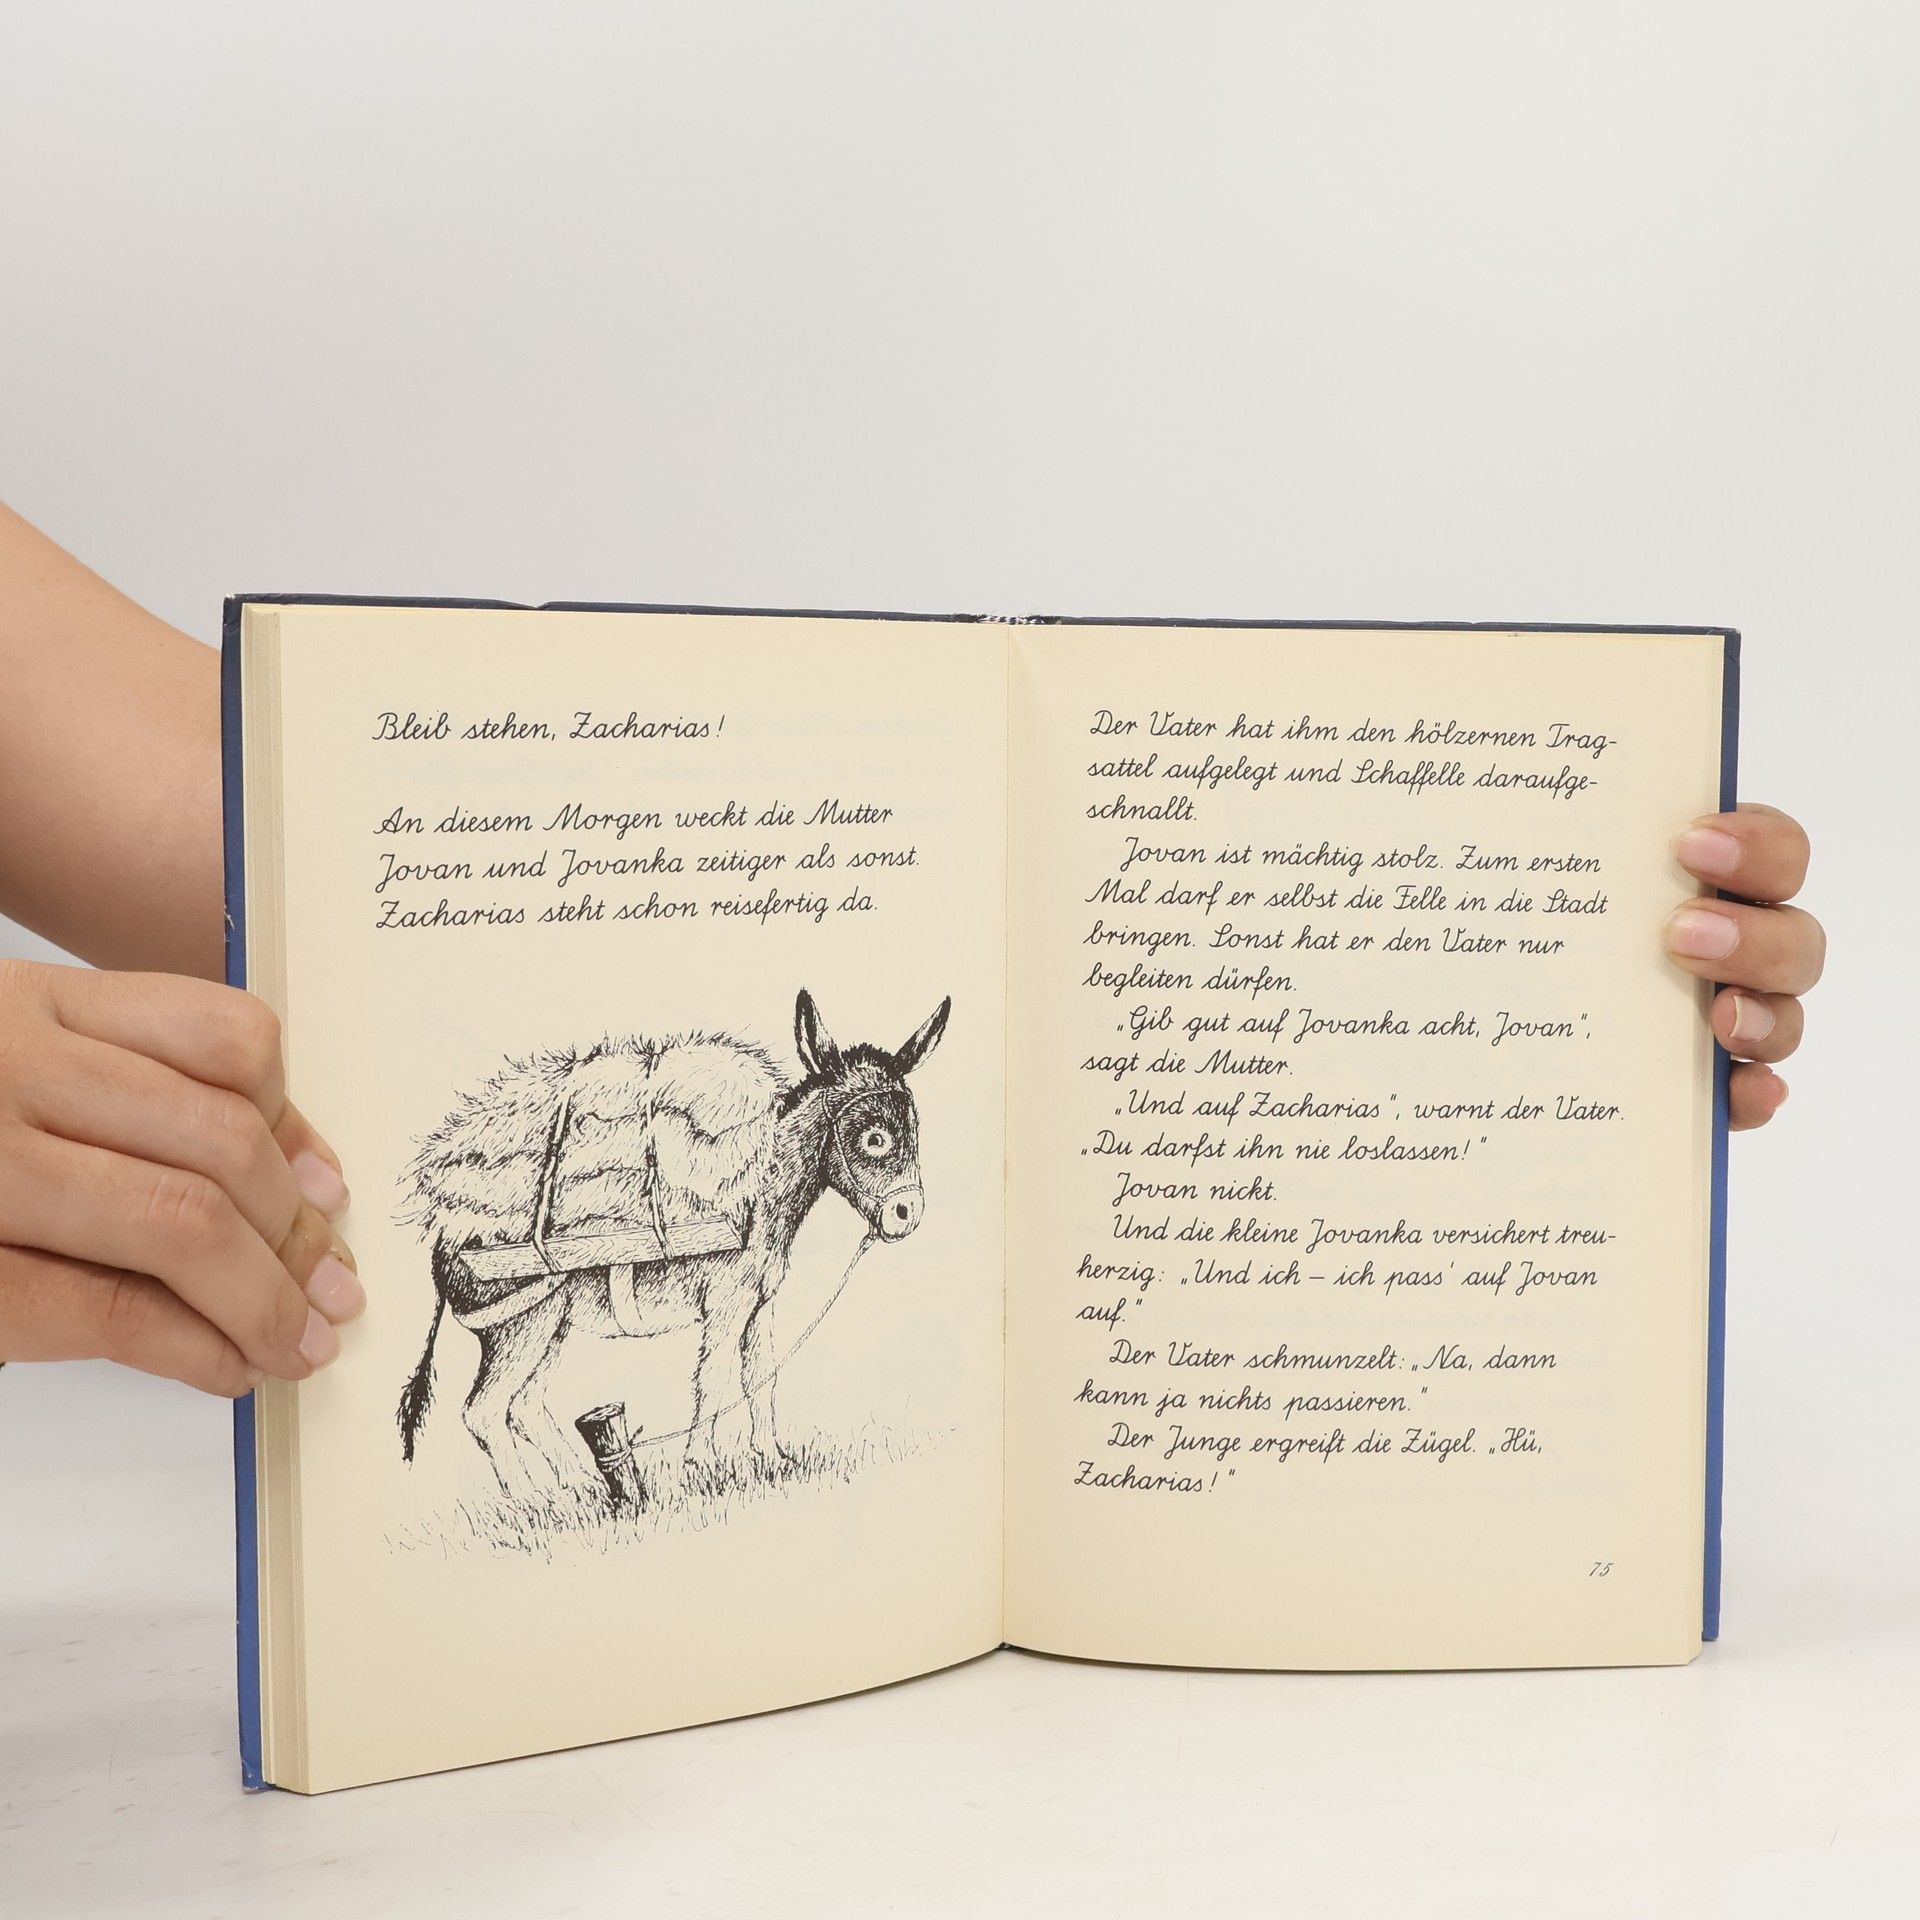 Bleib stehen, Zacharias!
An diesem Morgen weckt die Mutter
Jovan und Jovanka zeitiger als sonst.
Zacharias steht schon reisefertig da.
Der Vater hat ihm den hölzernen Trag-
sattel aufgelegt und Schaffelle daraufge-
schnallt.
Jovan ist mächtig stolz. Zum ersten
Mal darf er selbst die Felle in die Stadt
bringen. Sonst hat er den Vater nur
begleiten dürfen.
„Gib gut auf Jovanka acht, Jovan“,
sagt die Mutter.
„Und auf Zacharias“, warnt der Vater.
„Du darfst ihn nie loslassen!“
Jovan nickt.
Und die kleine Jovanka versichert treu-
herzig: „Und ich – ich pass' auf Jovan
auf.“
Der Vater schmunzelt: „Na, dann
kann ja nichts passieren.“
Der Junge ergreift die Zügel. „Hü,
Zacharias!“
75